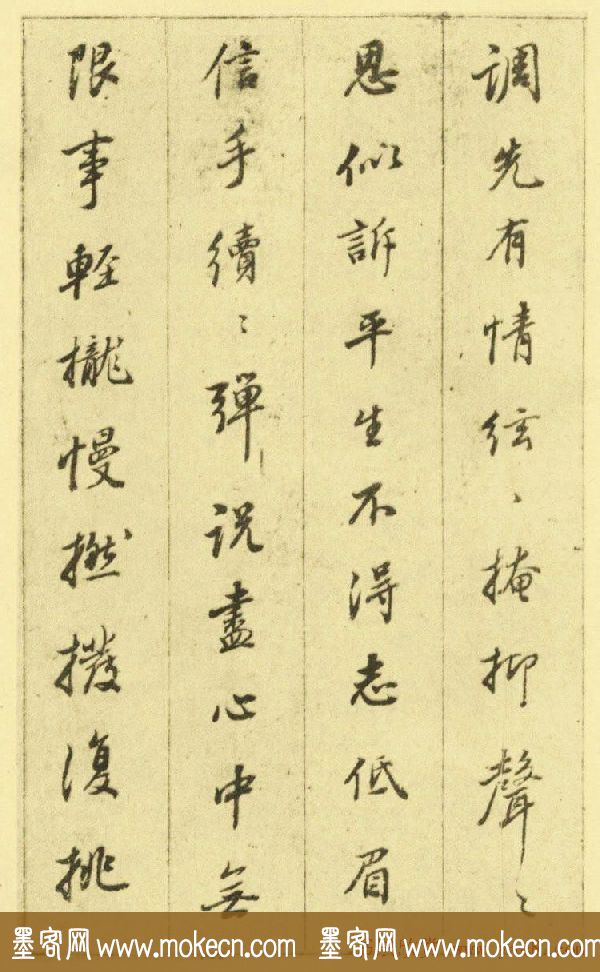 調先有情絃〻掩抑聲〻
思似訴平生不得志低眉
信手續〻彈説盡心中無
限事輕攏慢撚撥復挑
墨客网 www.mokecn.com 墨客网 www.mokecn.com